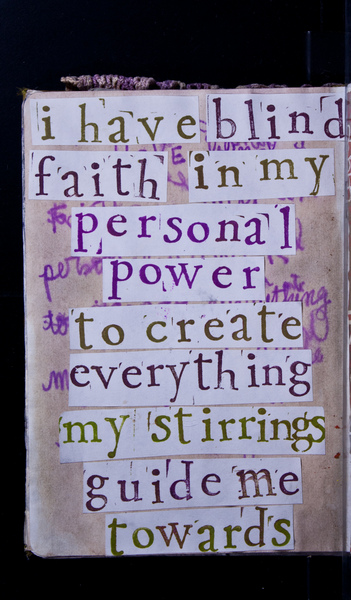 i have blind
faith in my
personal
power
to create
everything
my stirrings
guide me
towards